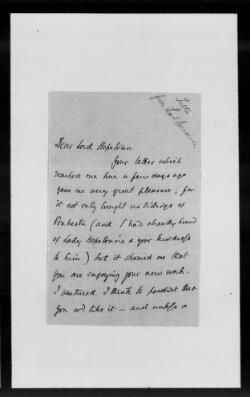 Letter
from Lord
Dear Lord Hopetoun
Your letter which
reached me here a few days ago
gave me very great pleasure; for
it not only brought us tidings of
(and I had already heard
of Lady Hopetoun's & your kindness
to him) but it showed me that
you are enjoying your new work.
I ventured I think to predict that
you wd like it – and unless a